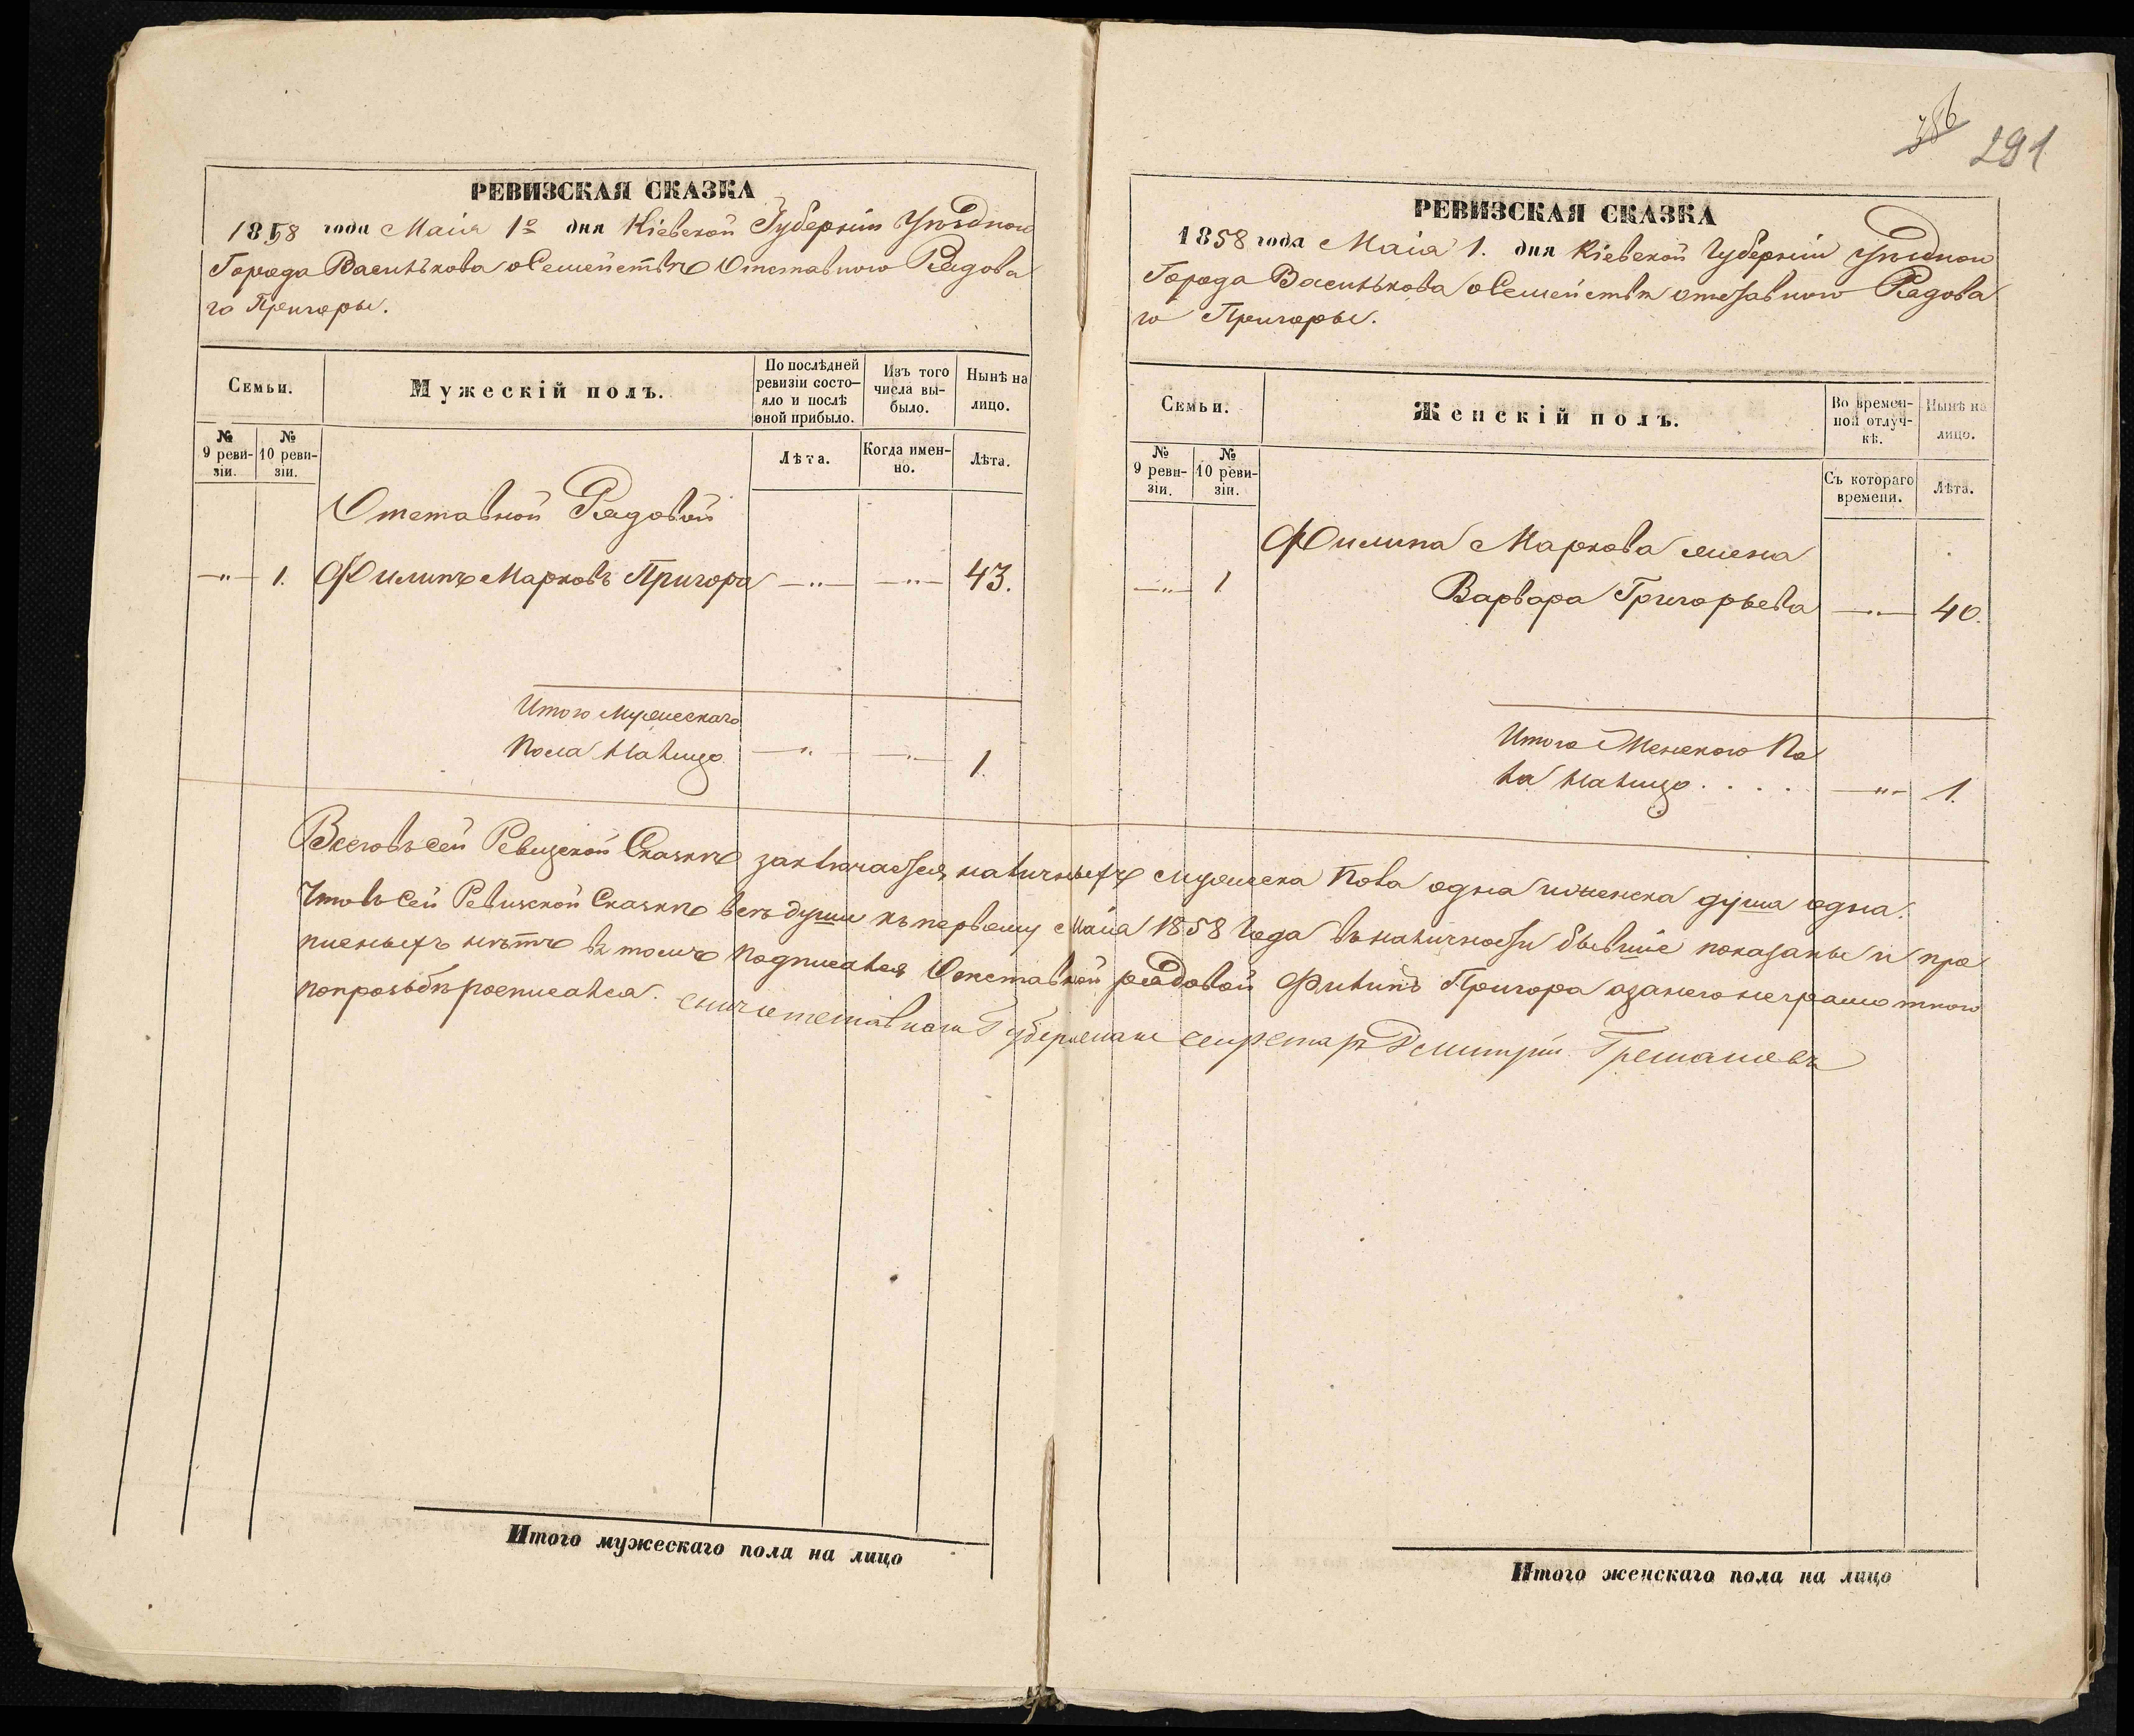 386
291
РЕВИЗСКАЯ СКАЗКА
1858 года Маія 1го дня Кіевской Губерніи Уѣзднои
Города Василькова о Семействѣ Отставного Рядова
го Пригоры.
Семьи.
Мужескій полъ.
По послѣдней ревизіи состо-яло и послѣ оной прибыло.
Изъ того числа вы-было.
Нынѣ на лицо.
№ 9 реви-зіи.
№ 10 реви-зіи.
Лѣта.
Когда имен-но.
Лѣта.
Отставной Рядовой
—"— 1. Филипъ Марковъ Пригора —"— —"— 43.
Итого мужескаго
Пола налицо —"— —"— 1.
РЕВИЗСКАЯ СКАЗКА
1858 года Маія 1. дня Кіевской Губерніи Уѣзднои
Города Василькова о Семействѣ отставного Рядова
го Пригоры.
Семьи.
Женскій полъ.
Во времен-ной отлуч-кѣ.
Нынѣ на лицо.
№ 9 реви-зіи.
№ 10 реви-зіи.
Съ котораго времени.
Лѣта.
Филипа Маркова жена
—"— 1 Варвара Григорьева —"— 40.
Итого Женского По
ла налицо . . . . —"— 1.
Всего въ сей Ревизской Сказкѣ заключается наличныхъ мужеска пола одна и женска душа одна.
Что въ Сей Ревизской Сказкѣ всѣ души къ первому Маія 1858 года въ наличности бывшіе показаны и про
писныхъ нѣтъ въ томъ подписался Отставной рядовой Филипъ Пригора а за него неграмотного
по прозьбѣ росписался. Губернски секретарь Дмитрій
Итого мужескаго пола на лицо
Итого женскаго пола на лицо